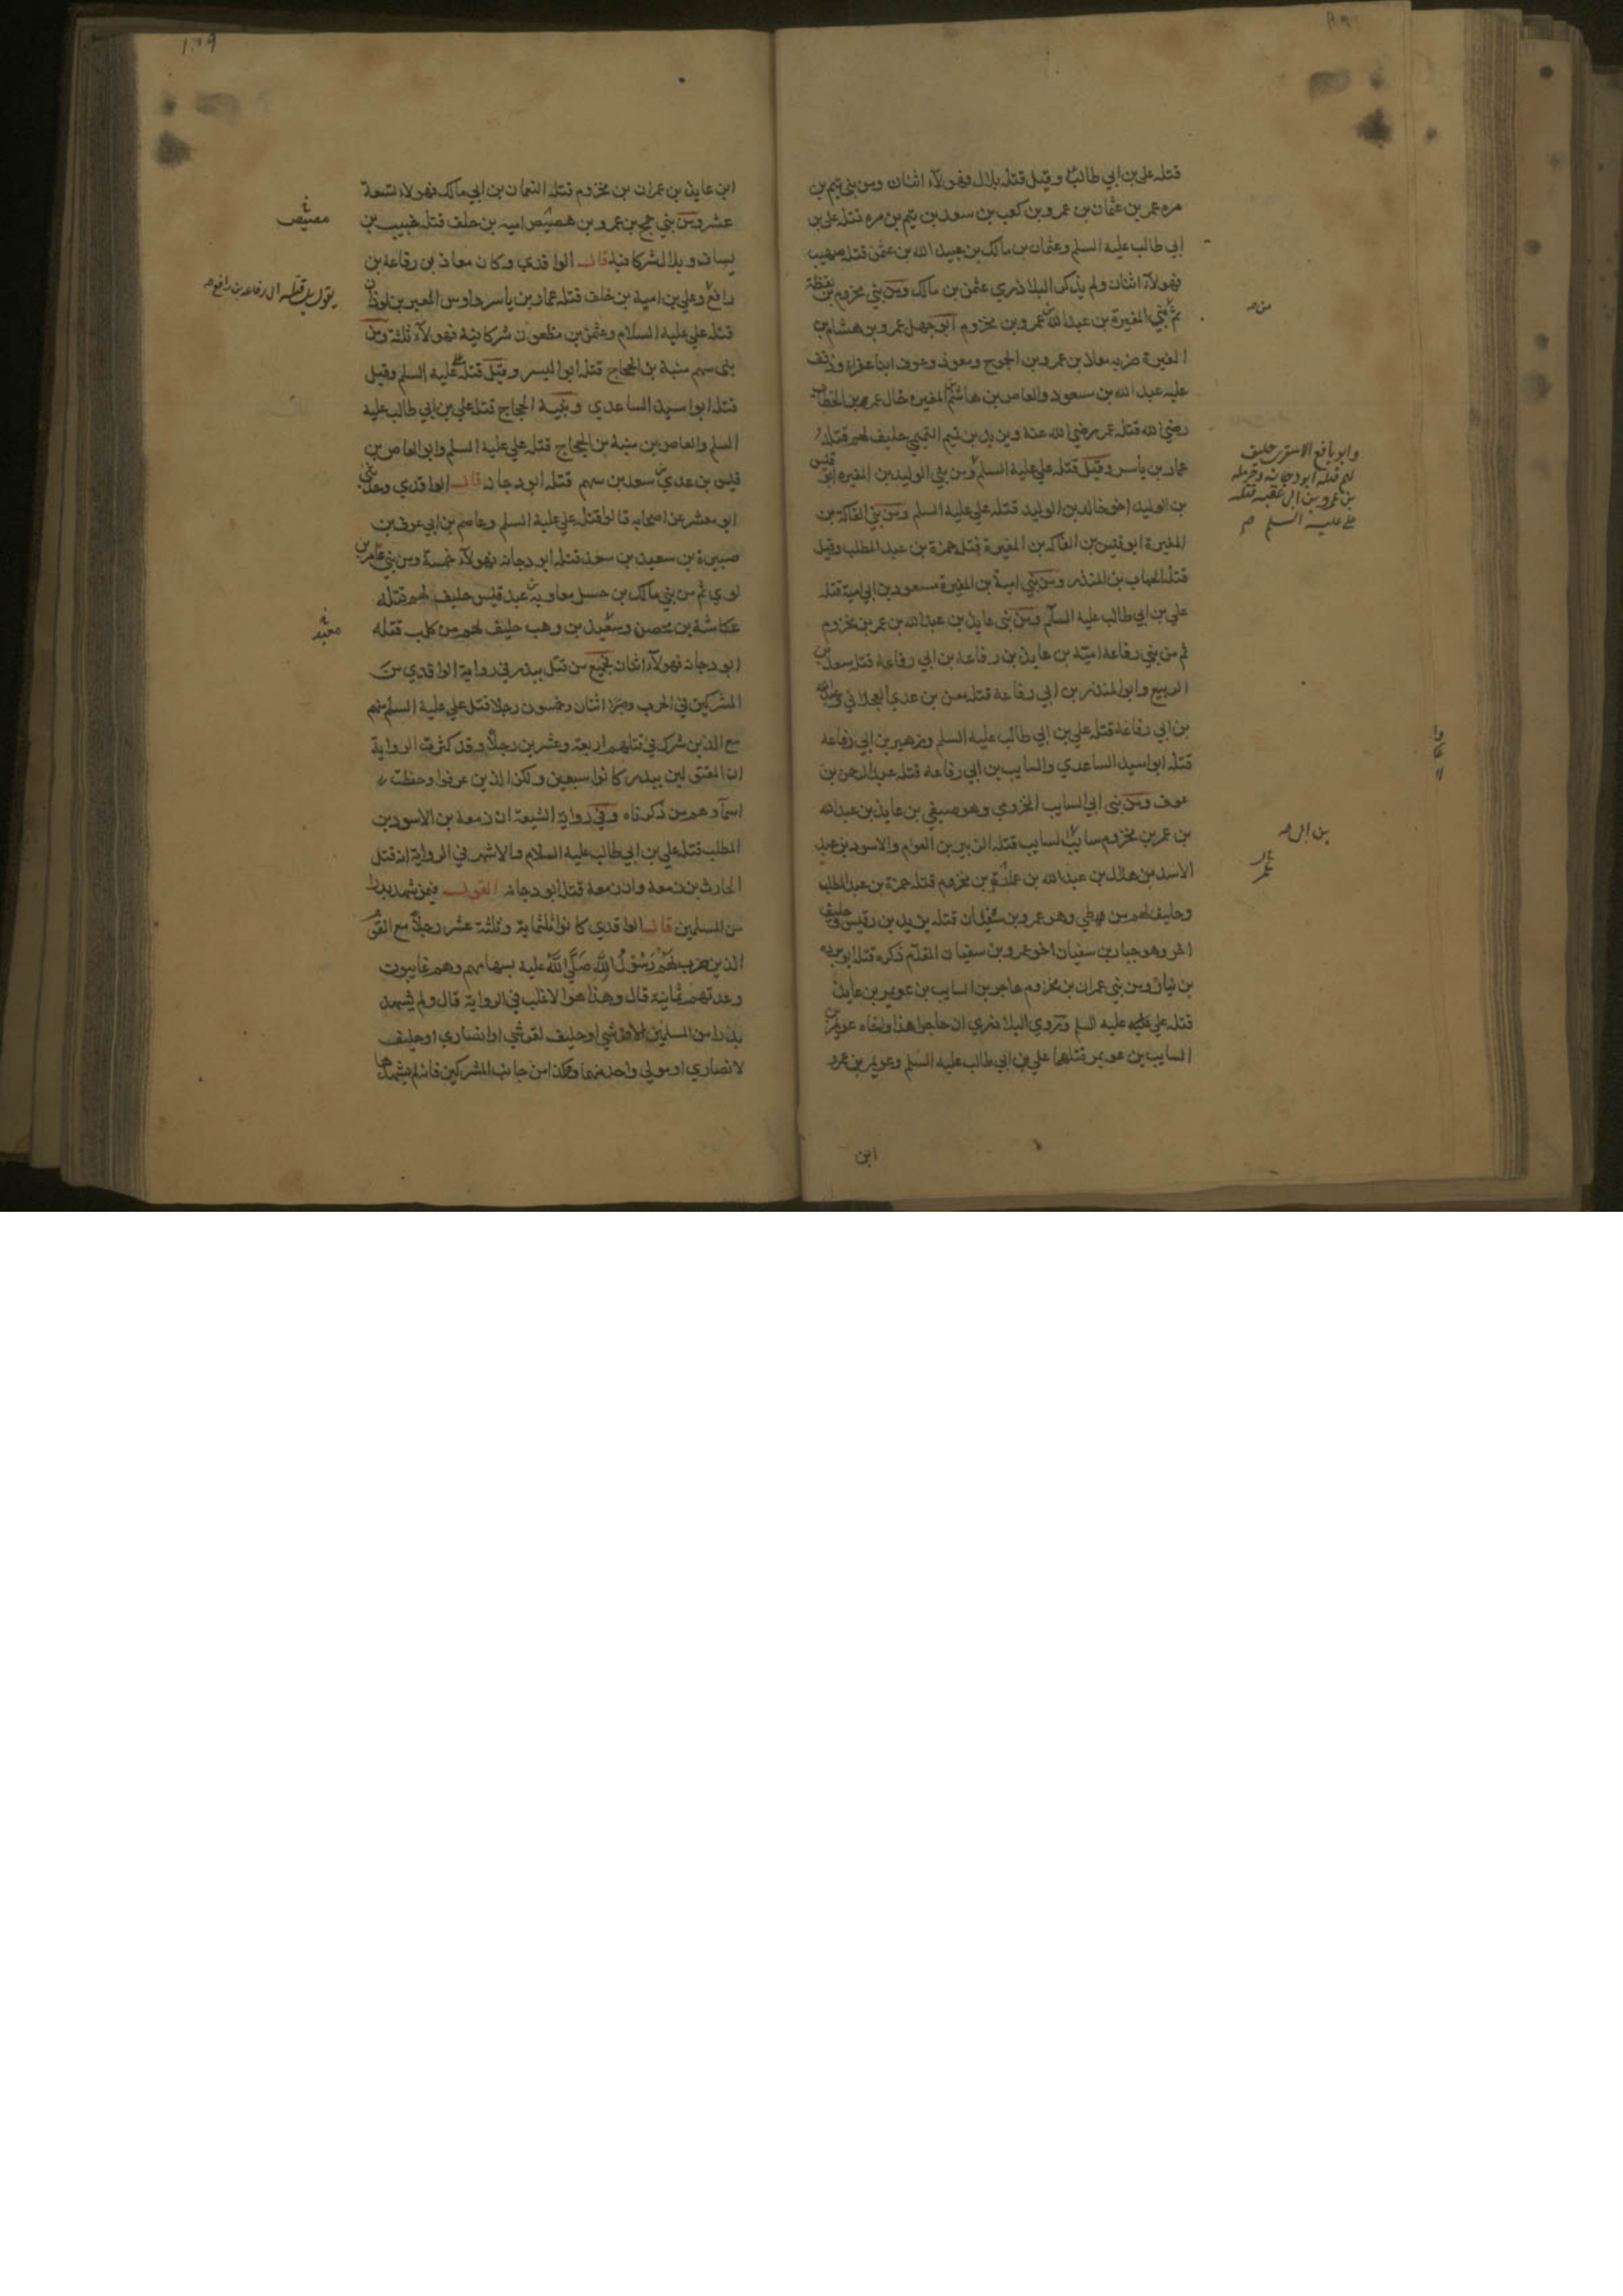 قتله علي بن ابي طالب وقيل قتله بلال فهولاء اثنان ومن بني تيم بن
مره عمر بن عثمان بن عمرو بن كعب بن سعد بن تيم بن مره قتله علي بن
ابي طالب عليه السلم وعثمان بن مالك بن عبيد الله بن عثمن قتله صهيب
فهولاء اثنان ولم يذكر البلاذري عثمن بن مالك ومن بني مخزوم بن يقظة
ثم بني المغيرة بن عبد الله بن عمرو بن مخزوم ابو جهل عمرو بن هشام بن
المغيرة ضربه معاذ بن عمرو بن الجموح ومعوذ وعوف ابنا عفراء وذفف
عليه عبد الله بن مسعود والعاص بن هاشم بن المغيره خال عمر بن الخطاب
رضي الله قتله عمر رضي الله عنه ويزيد بن تميم التميمي حليف لهم قتله
عمار بن ياسر وقيل قتله علي عليه السلم ومن بني الوليد بن المغيره ابو قيس
بن الوليد اخو خالد بن الوليد قتله علي عليه السلم ومن بني الفاكه بن
المغيرة ابو قيس بن الفاكه بن المغيرة قتله حمزة بن عبد المطلب وقيل
قتله الحباب بن المنذر ومن بني امية بن المغيرة مسعود بن ابي امية قتله
علي بن ابي طالب عليه السلم ومن بني عايذ بن عبد الله بن عمر بن مخزوم
ثم من بني رفاعة امية بن عايذ بن رفاعة بن ابي رفاعة قتله سعد بن
الربيع وابو المنذر بن ابي رفاعة قتله معن بن عدي العجلاني وعبد الله
بن ابي رفاعة قتله علي بن ابي طالب عليه السلم وزهير بن ابي رفاعة
قتله ابو اسيد الساعدي والسايب بن ابي رفاعة قتله عبد الرحمن بن
عوف ومن بني ابي السايب المخزومي وهو صيفي بن عايذ بن عبد الله
بن عمر بن مخزوم سايب السايب قتله الزبير بن العوام والاسود بن عبد
الاسد بن هلال بن عبد الله بن عمر بن مخزوم قتله حمزة بن عبد المطلب
وحليف لهم من طي وهو عمرو بن سفيان قتله يزيد بن رقيس وحليف
اخر وهو جبار بن سفيان اخو عمرو بن سفيان المقدم ذكره قتله ابو برده
بن نيار ومن بني عمران بن مخزوم حاجز بن السايب بن عويمر بن عايذ
قتله علي عليه السلم وروي البلاذري ان حاجزا هذا واخاه عويمر بن
السايب بن عويمر قتلهما علي بن ابي طالب عليه السلم وعويمر بن عمرو
ابن
من
وابو نافع الاشعري حليف
لهم قتله ابو دجانه وحرمله
بن عمرو بن ابي عقبه قتله
علي عليه السلم
بن ابي
عمر
ابن عايذ بن عمران بن مخزوم قتله النعمان بن ابي مالك فهولاء تسعة
عشر ومن بني جمح بن عمرو بن هصيص اميه بن خلف قتله خبيب بن
يساف وبلال شركا فيه قال الواقدي وكان معاذ بن رفاعة بن
رافع وعلي بن امية بن خلف قتله عمار بن ياسر واوس بن المعير بن لوذان
قتله علي عليه السلام وعثمن بن مظعون شركا فيه فهولاء ثلثة ومن
بني سهم منبة بن الحجاج قتله ابو اليسر وقيل قتله علي عليه السلم وقيل
قتله ابو اسيد الساعدي ونبيه الحجاج قتله علي بن ابي طالب عليه
السلم والعاص بن منبة بن الحجاج قتله علي عليه السلم وابو العاص بن
قيس بن عدي بن سعد بن سهم قتله ابو دجانه قال الواقدي وحدثني
ابو معشر عن اصحابه قالوا قتله علي عليه السلم وعاصم بن ابي عوف بن
صبيرة بن سعيد بن سعد قتله ابو دجانه فهولاء خمسة ومن بني عامر بن
لوي ثم من بني مالك بن حسل معاوية بن عبد قيس حليف لهم قتله
عكاشة بن محصن وسعيد بن وهب حليف لهم من كلب قتله
ابو دجانه فهولاء اثنان فجميع من قتل ببدر في رواية الواقدي من
المشركين في الحرب وصبرا اثنان وخمسون رجلا قتل علي عليه السلم منهم
مع الذين شرك في قتلهم اربعة وعشرين رجلا وقد كثرت الرواية
ان المقتولين ببدر كانوا سبعين ولكن الذين عرفوا وحفظت
اسماوهم من ذكرناه وفي رواية الشيعة ان زمعة بن الاسود بن
المطلب قتله علي بن ابي طالب عليه السلام والاشهر في الرواية انه قتل
الحارث بن زمعة وان زمعة قتله ابو دجانه القول فيمن شهد بدرا
من المسلمين قال الواقدي كانوا ثلثماية وثلثة عشر رجلا مع القوم
الذين ضرب لهم رسول الله صلى الله عليه بسهامهم وهم غايبون
وعدتهم ثمانية قال وهذا هو الاغلب في الرواية قال ولم يشهد
بدرا من المسلمين الا قرشي او حليف لقرشي او انصاري او حليف
لانصاري او مولى واحد منهما وهكذا من جانب المشركين فانه لم يشهدها
يقول بل قتله ابي رفاعه بن رافع
معبد